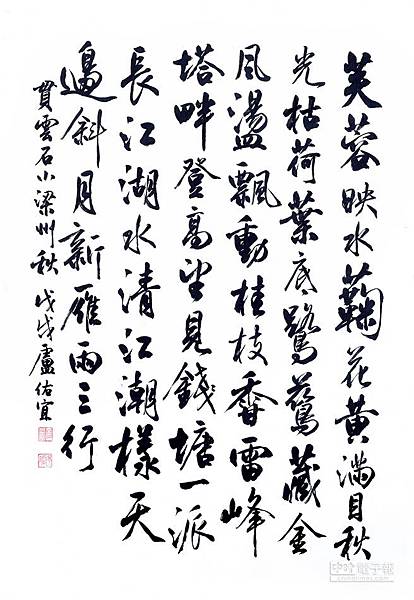 芙蓉映水蘜花黃滿目秋
光枯荷葉底鷺鷥藏金
風盪飄動桂枝香雷峰
塔畔登高望見錢塘一派
長江湖水清江潮樣天
邊斜月新雁兩三行
貫雲石小梁州秋 戊戌盧佑宜
中時電子報
chinatimes.com